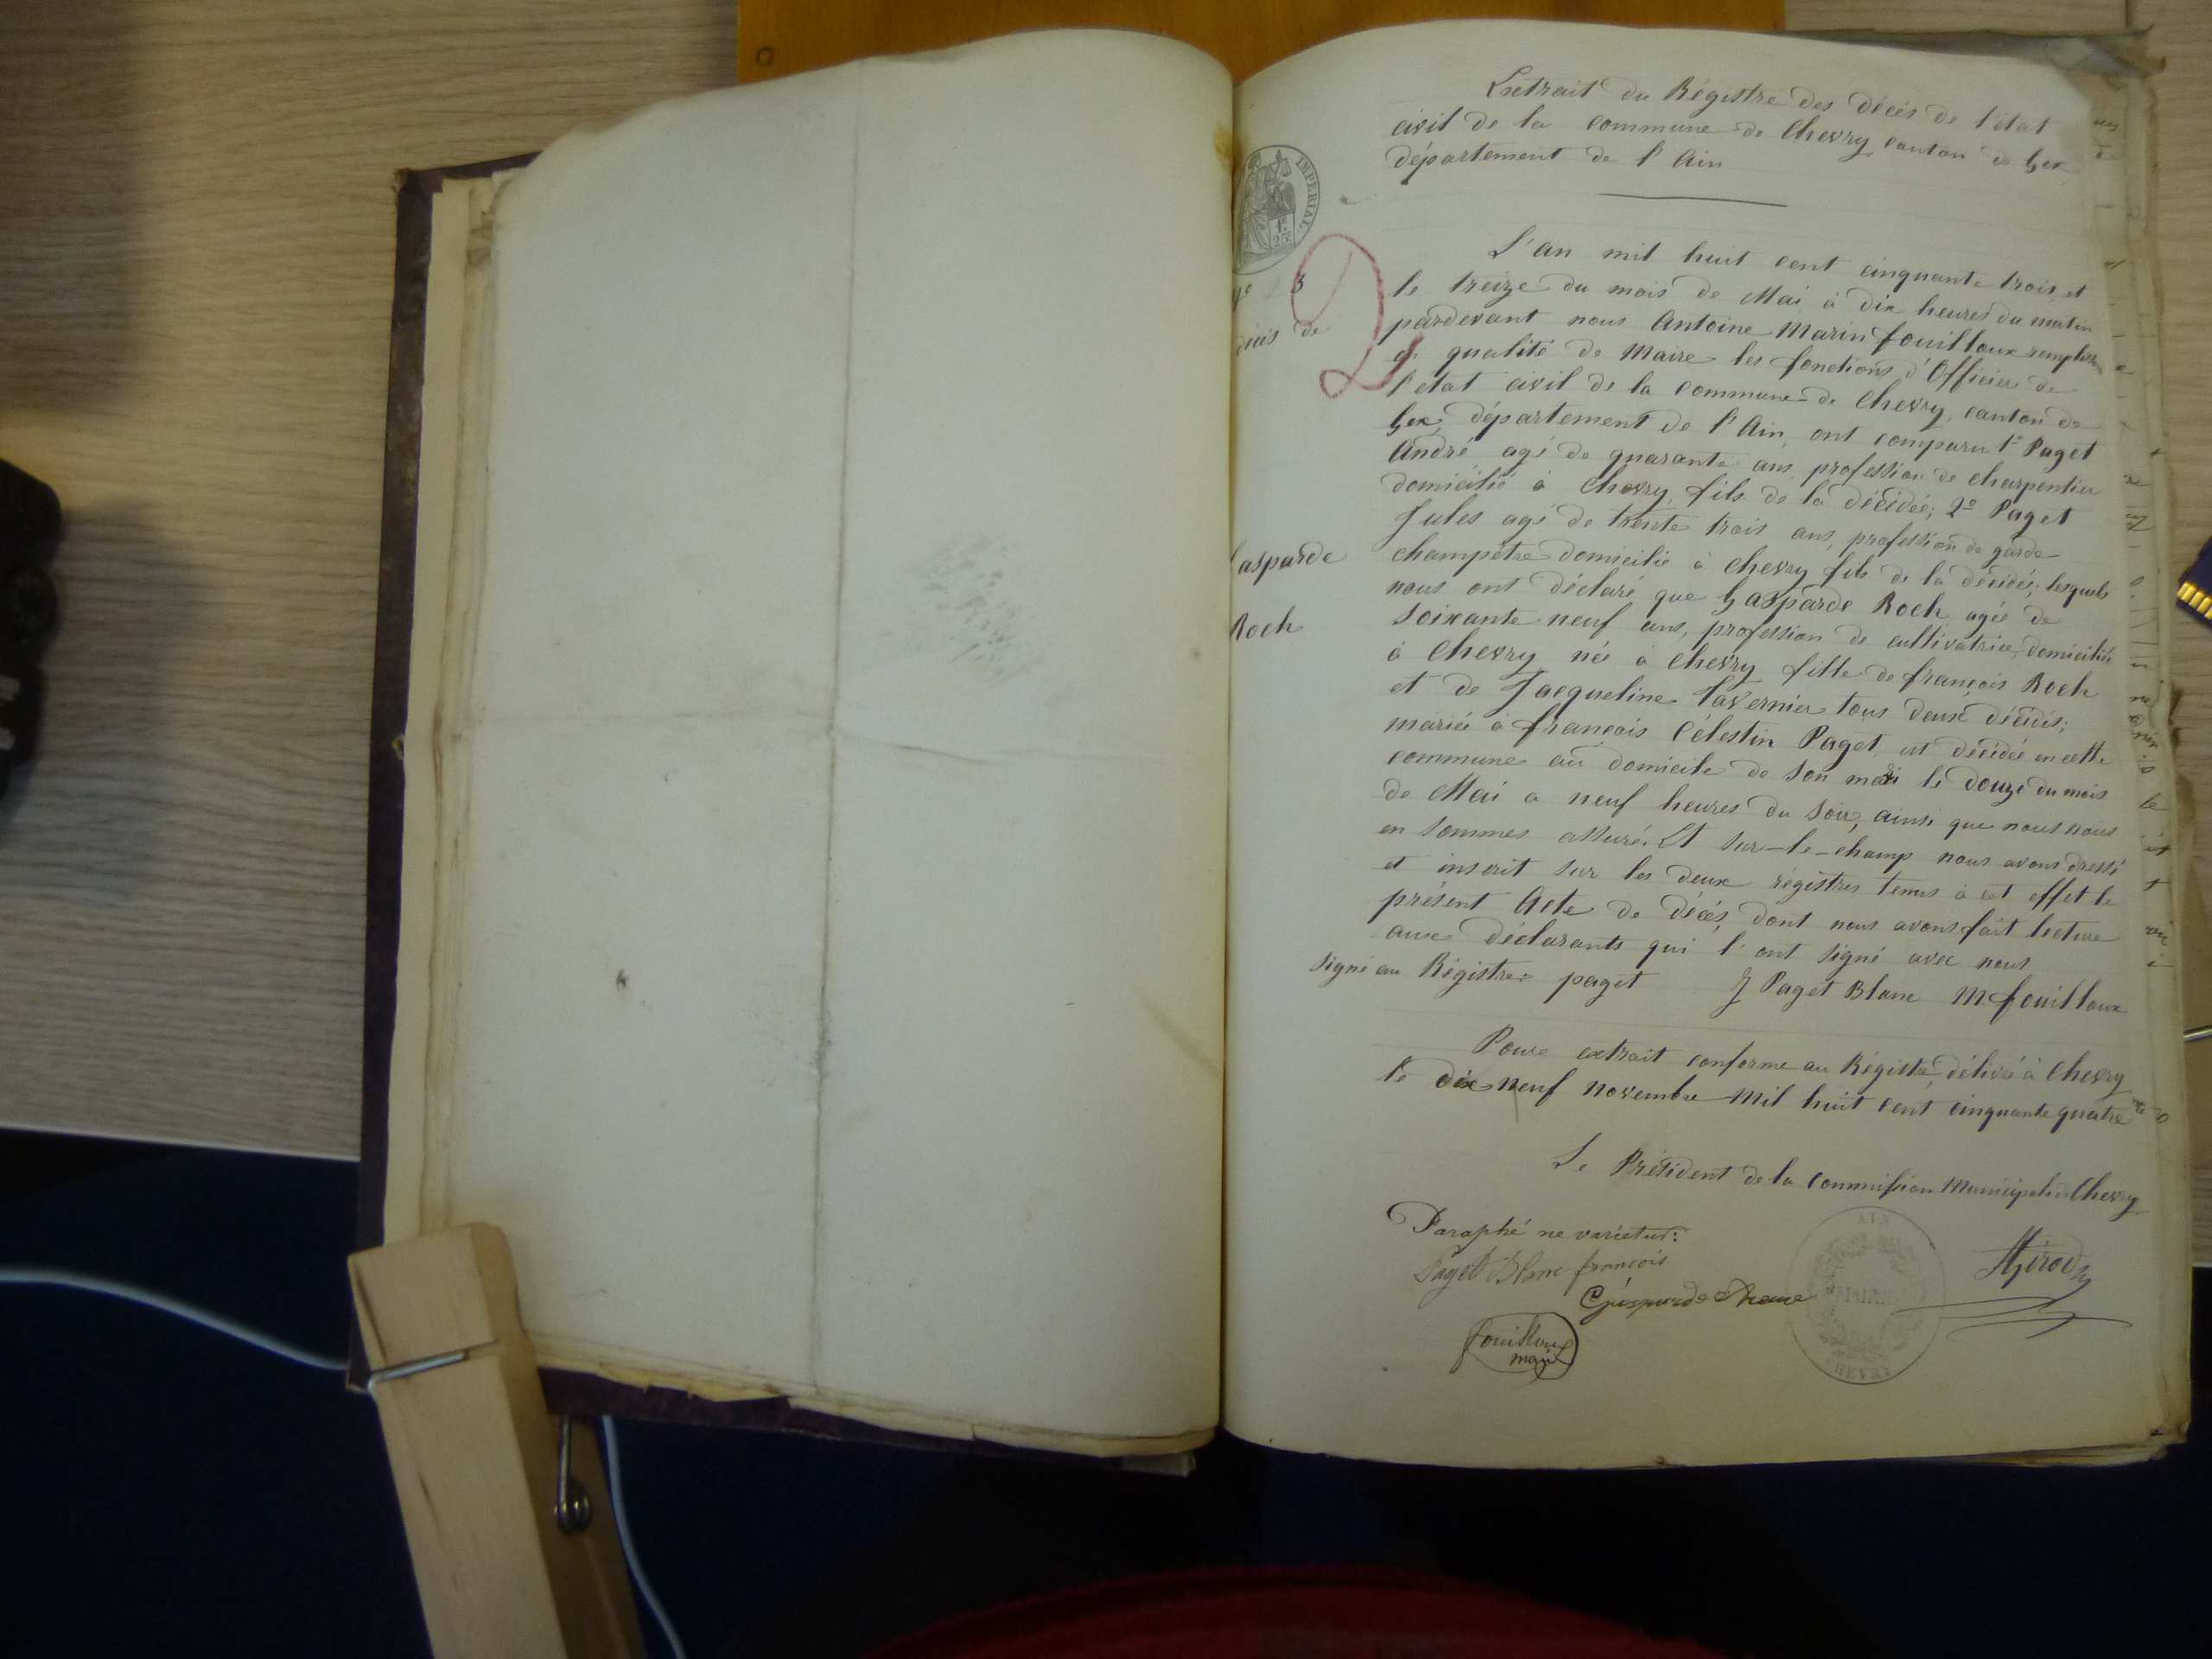 Extrait du Régistre des décès de l'état
civil de la commune de Chevry canton de Gex
département de l'Ain
IMPERIAL
1F
25C
3
L'an mil huit cent cinquante trois et
le treize du mois de Mai à dix heures du matin
décès de
pardevant nous Antoine Marin fouilloux
qualité de Maire les fonctions d'Officier de
l'état civil de la commune de Chevry, canton de
Gex, département de l'Ain, ont comparu 1º Paget
André agé de quarante ans profession de charpentier
domicilié à Chevry fils de la décédée; 2º Paget
Jules agé de trente trois ans, profession de garde
champêtre domicilié à Chevry fils de la décédée; lesquels
asparde
nous ont déclaré que Gasparde Roch agée de
Roch
soixante neuf ans, profession de cultivatrice, domiciliée
à Chevry née à Chevry fille de françois Roch
et de Jacqueline Tavernier tous deux décédés;
mariée à françois Célestin Paget est décédée en cette
commune au domicile de son mari le douze du mois
de Mai a neuf heures du soir, ainsi que nous nous
en sommes assuré. Et sur-le-champ nous avons dressé
et inscrit sur les deux régistres tenus à cet effet le
présent Acte de décès, dont nous avons fait lecture
aux déclarants qui l'ont signé avec nous
signé au Régistre: paget J Paget Blanc M fouilloux
Pour extrait conforme au Régistre, délivré à Chevry
le dix neuf novembre mil huit cent cinquante quatre
Le Président de la Commission Municipale de Chevry
Paraphé ne varietur:
Paget Blanc françois
Girod
fouilloux
maire
AIN
MAIRIE
CHEVRY